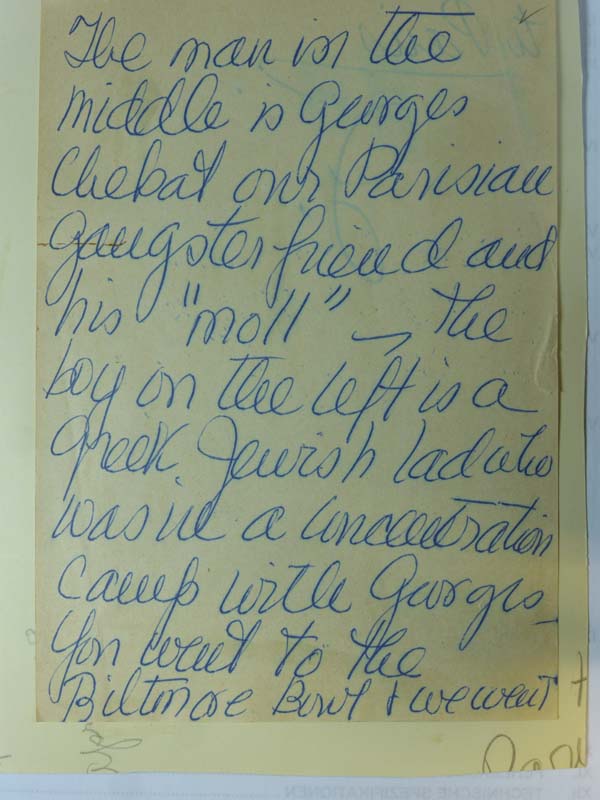 The man in the
middle is Georges
Chebat our Parisian
gangster friend and
his "moll" — the
boy on the left is a
Greek Jewish lad who
was in a concentration
camp with Georges
You went to the
Biltmore Bowl + we went
TECHNISCHE SPEZIFIKATIONEN